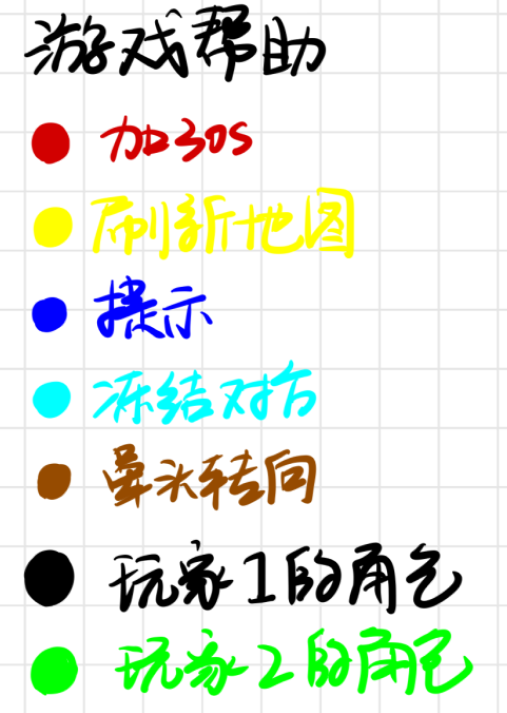 游戏帮助
加30s
刷新地图
提示
冻结对方
晕头转向
玩家1的角色
玩家2的角色